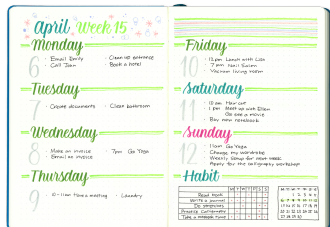 April Week 15
Monday
6
• Email Emily
• Call Joan
• Clean up entrance
• Book a hotel
Tuesday
7
• Create documents
• Clean bathroom
Wednesday
8
• Make an invoice
• Email an invoice
• 7pm Go Yoga
Thursday
9
• 10-11am Have a meeting
• Laundry
Friday
10
• 12pm Lunch with Lily
• 7pm Nail Salon
• Vacuum living room
Saturday
11
• 10am Hair cut
• 1pm Meet up with Ellen
Go see a movie
• Buy new notebook
Sunday
12
• 11am Go Yoga
• Change my wardrobe
• Weekly Setup for next week
• Apply for the calligraphy workshop
Habit
M T W T F S S
Read book
Write a journal
Do stretches
Practice Calligraphy
Take a widget note